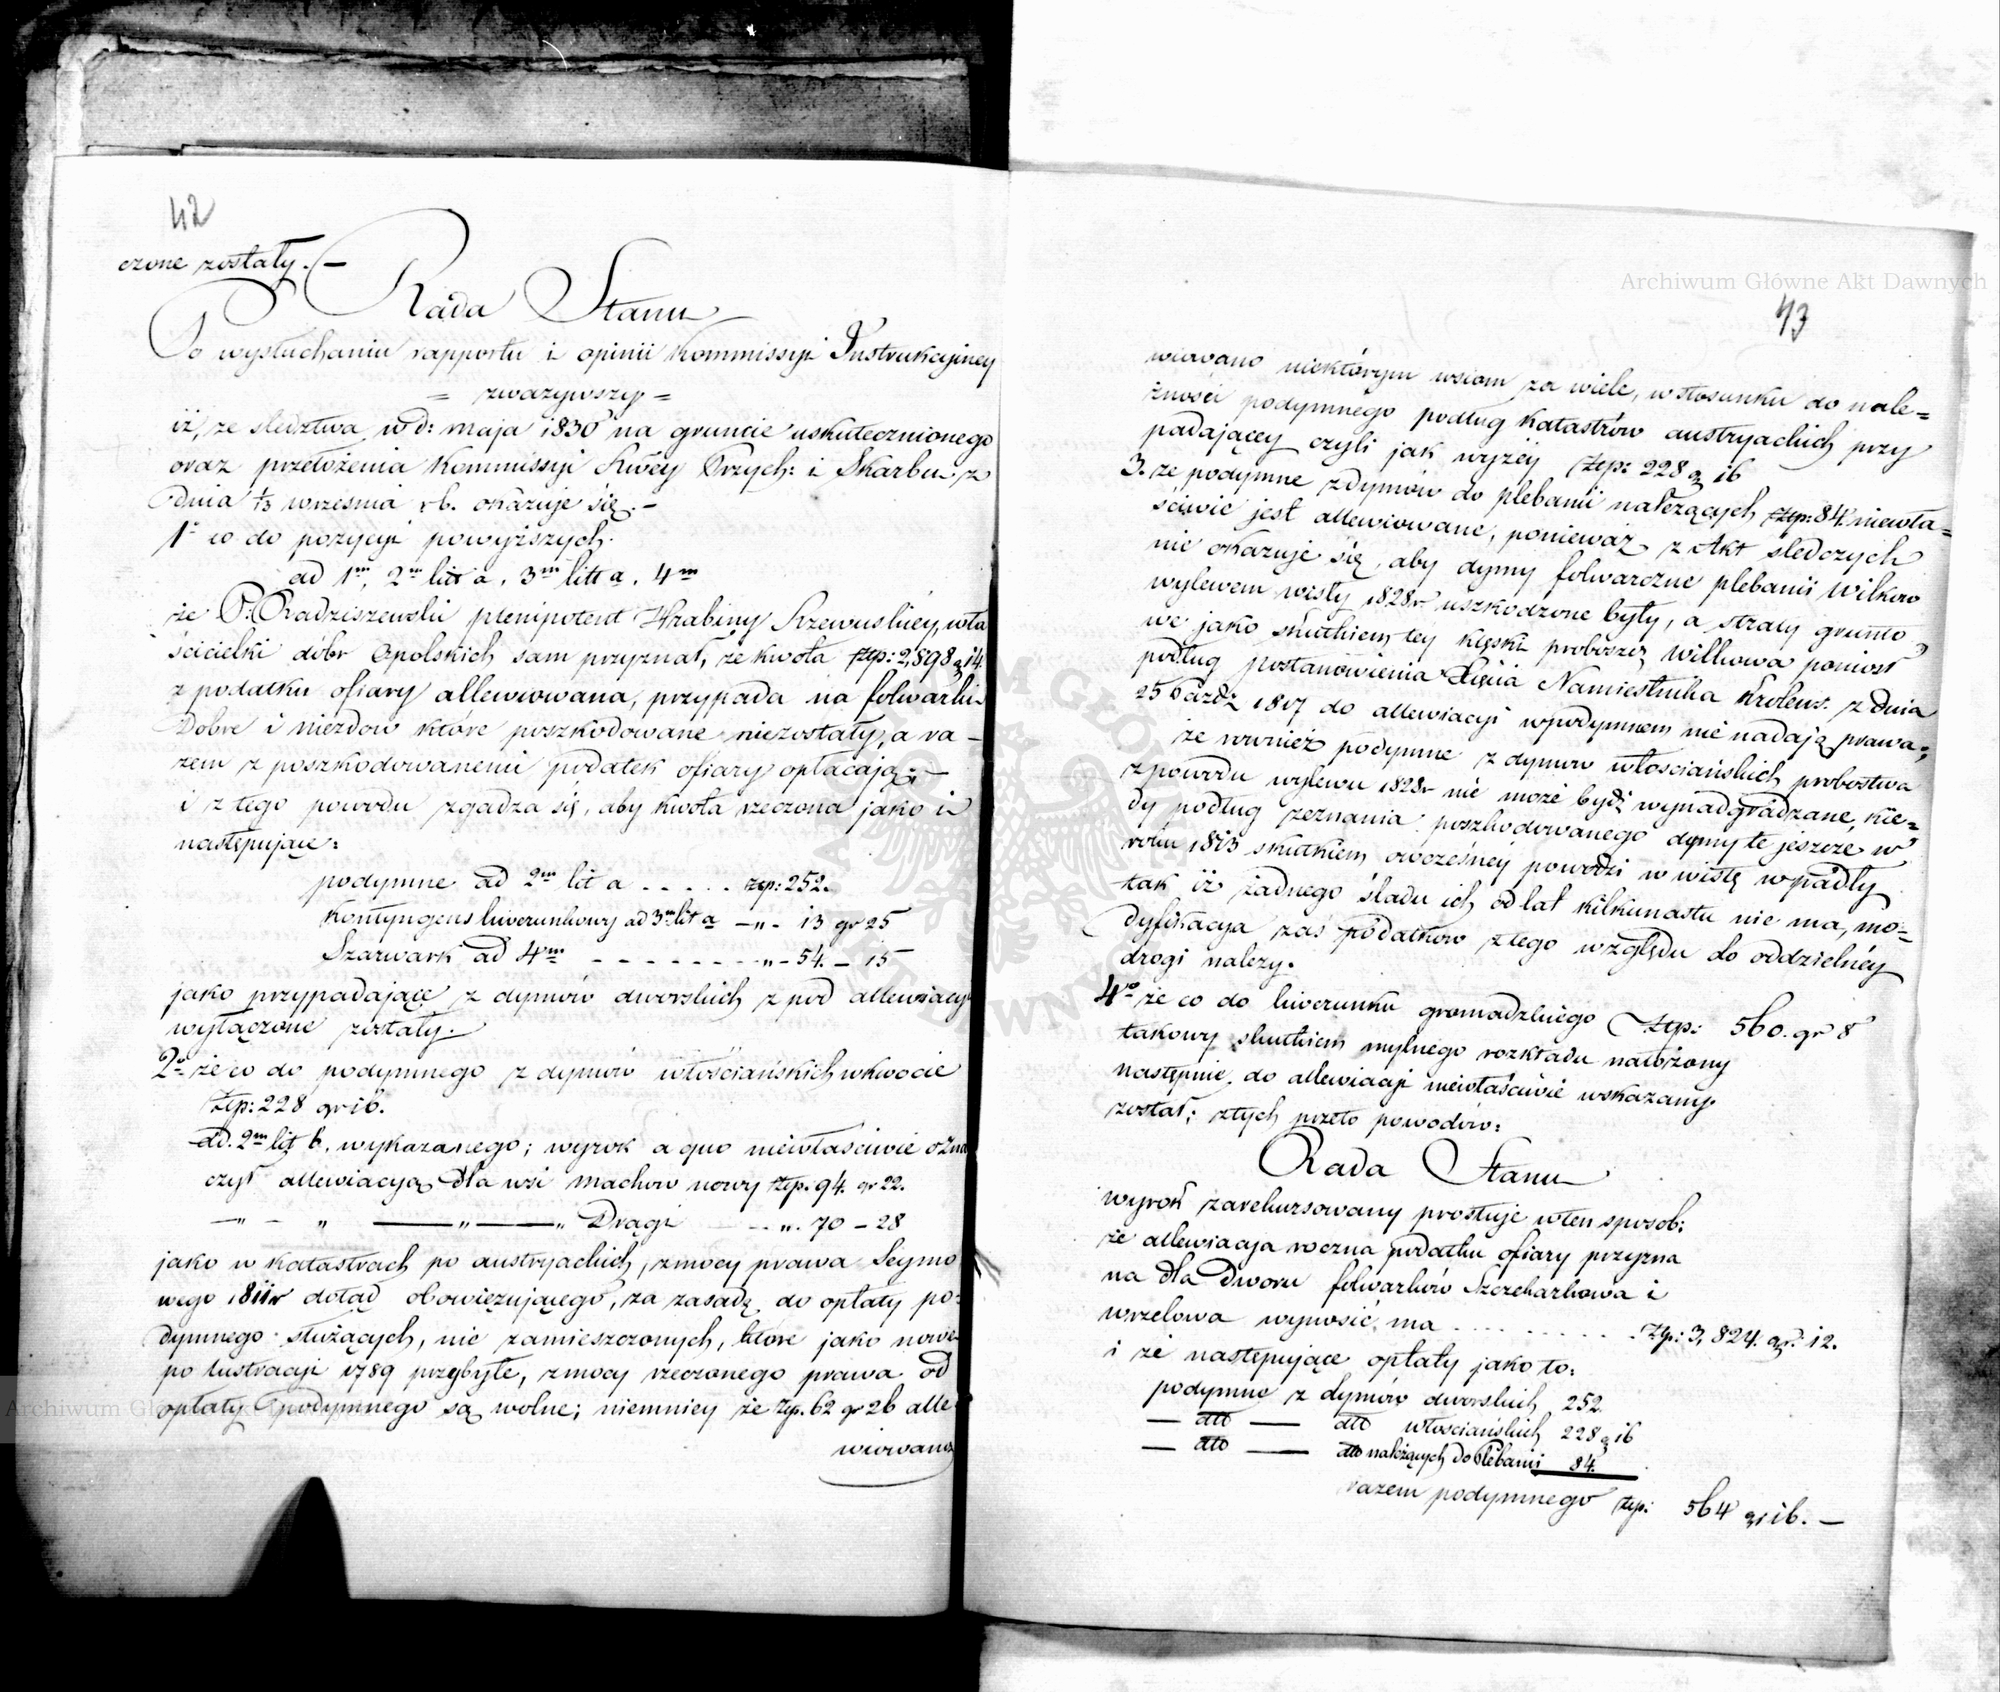 42
czone zostały. –
Rada Stanu
Po wysłuchaniu rapportu i opinii Kommissyi Instrukcyiney
= zważywszy =
iż, ze sledztwa w d: maja 1830 na gruncie uskutecznionego
oraz przełożenia Kommissyi Rwey Przych: i Skarbu z
dnia 1/3 września r b. okazuje się. –
1o co do pozycyi powyższych.
ad 1m, 2m litt a, 3m litt a, 4m
że P. Radziszewski plenipotent Hrabiny Rzewuskiey, wła
ścicielki dóbr Opolskich sam przyznał, że kwota złp: 2,898 g 14
z podatku ofiary allewiowana, przypada na folwarki
Dobre i Niezdow które poszkodowane niezostały, a ra –
zem z poszkodowanemi podatek ofiary opłacają; –
i z tego powodu zgadza się, aby kwota rzeczona jako i
następujące:
podymne ad 2m lit a . . . . . złp: 252.
Kontyngens liwerunkowy ad 3m lit a – „ - 13 gr 25
Szarwark ad 4m - - - - - - - - „ - 54. – 15
jako przypadające z dymów dworskich z pod allewiacyi
wyłączone zostały. –
2o że co do podymnego z dymów włościańskich w kwocie
złp: 228 gr 16.
ad. 2m lit b. wykazanego; wyrok a quo niewłaściwie ozna
czył allewiacyą dla wsi Machow nowy złp. 94. gr 22.
— „ - „ — „ — „ Drągi - . . „. 70 – 28
jako w katastrach po austryackich, z mocy prawa Seymo
wego 1811r dotąd obowięzującego, za zasadę do opłaty po=
dymnego służących, nie zamieszczonych, które jako nowe
po lustracyi 1789 przybyłe, z mocy rzeczonego prawa od
opłaty podymnego są wolne; niemniey że złp. 62 gr 26 alle=
wiowano
43
wiowano niektórym wsiom za wiele, w stosunku do nale=
żności podymnego podług Katastrów austryackich przy
padającey czyli jak wyżey złp: 228 g 16
3. że podymne z dymów do plebanii należących złp: 84 niewła=
ściwie jest allewiowane, ponieważ z Akt sledczych
nie okazuje się, aby dymy folwarczne plebanii Wilkow
wylewem wisły 1828r uszkodzone były, a straty grunto
we jako skutkiem tey klęski proboszcz Wilkowa poniosł
podług postanowienia Xięcia Namiestnika Królews. z dnia
25 Paźdź 1817 do allewiacyi w podymnem nie nadają prawa;
że również podymne z dymów włosciańskich probostwa
z powodu wylewu 1828r nie może bydź wynadgradzane, kie=
dy podług zeznania poszkodowanego dymy te jeszcze w
roku 1813 skutkiem owczesney powodzi w wisłę wpadły
tak iż żadnego śladu ich od lat kilkunastu nie ma, mo=
dyfikacya zaś podatków z tego względu do oddzielney
drogi należy.
4o że co do liwerunku gromadzkiego złp: 560. gr 8
takowy skutkiem mylnego rozkładu nałożony
następnie do allewiacyi niewłaściwie wskazany
został; z tych przeto powodów:
Rada Stanu
wyrok zarekursowany prostuje w ten sposób:
że allewiacya roczna podatku ofiary przyzna
na dla Dworu folwarków Szczekarkowa i
Wrzelowa wynosić ma . . . . . . . . . złp: 3,824. gr: 12.
i że następujące opłaty jako to:
podymne z dymów dworskich 252
— dtto — dtto włościańskich 228 g 16
— dtto — dtto należących do Plebanii 84.
razem podymnego złp: 564 gr 16. –
Archiwum Główne Akt Dawnych